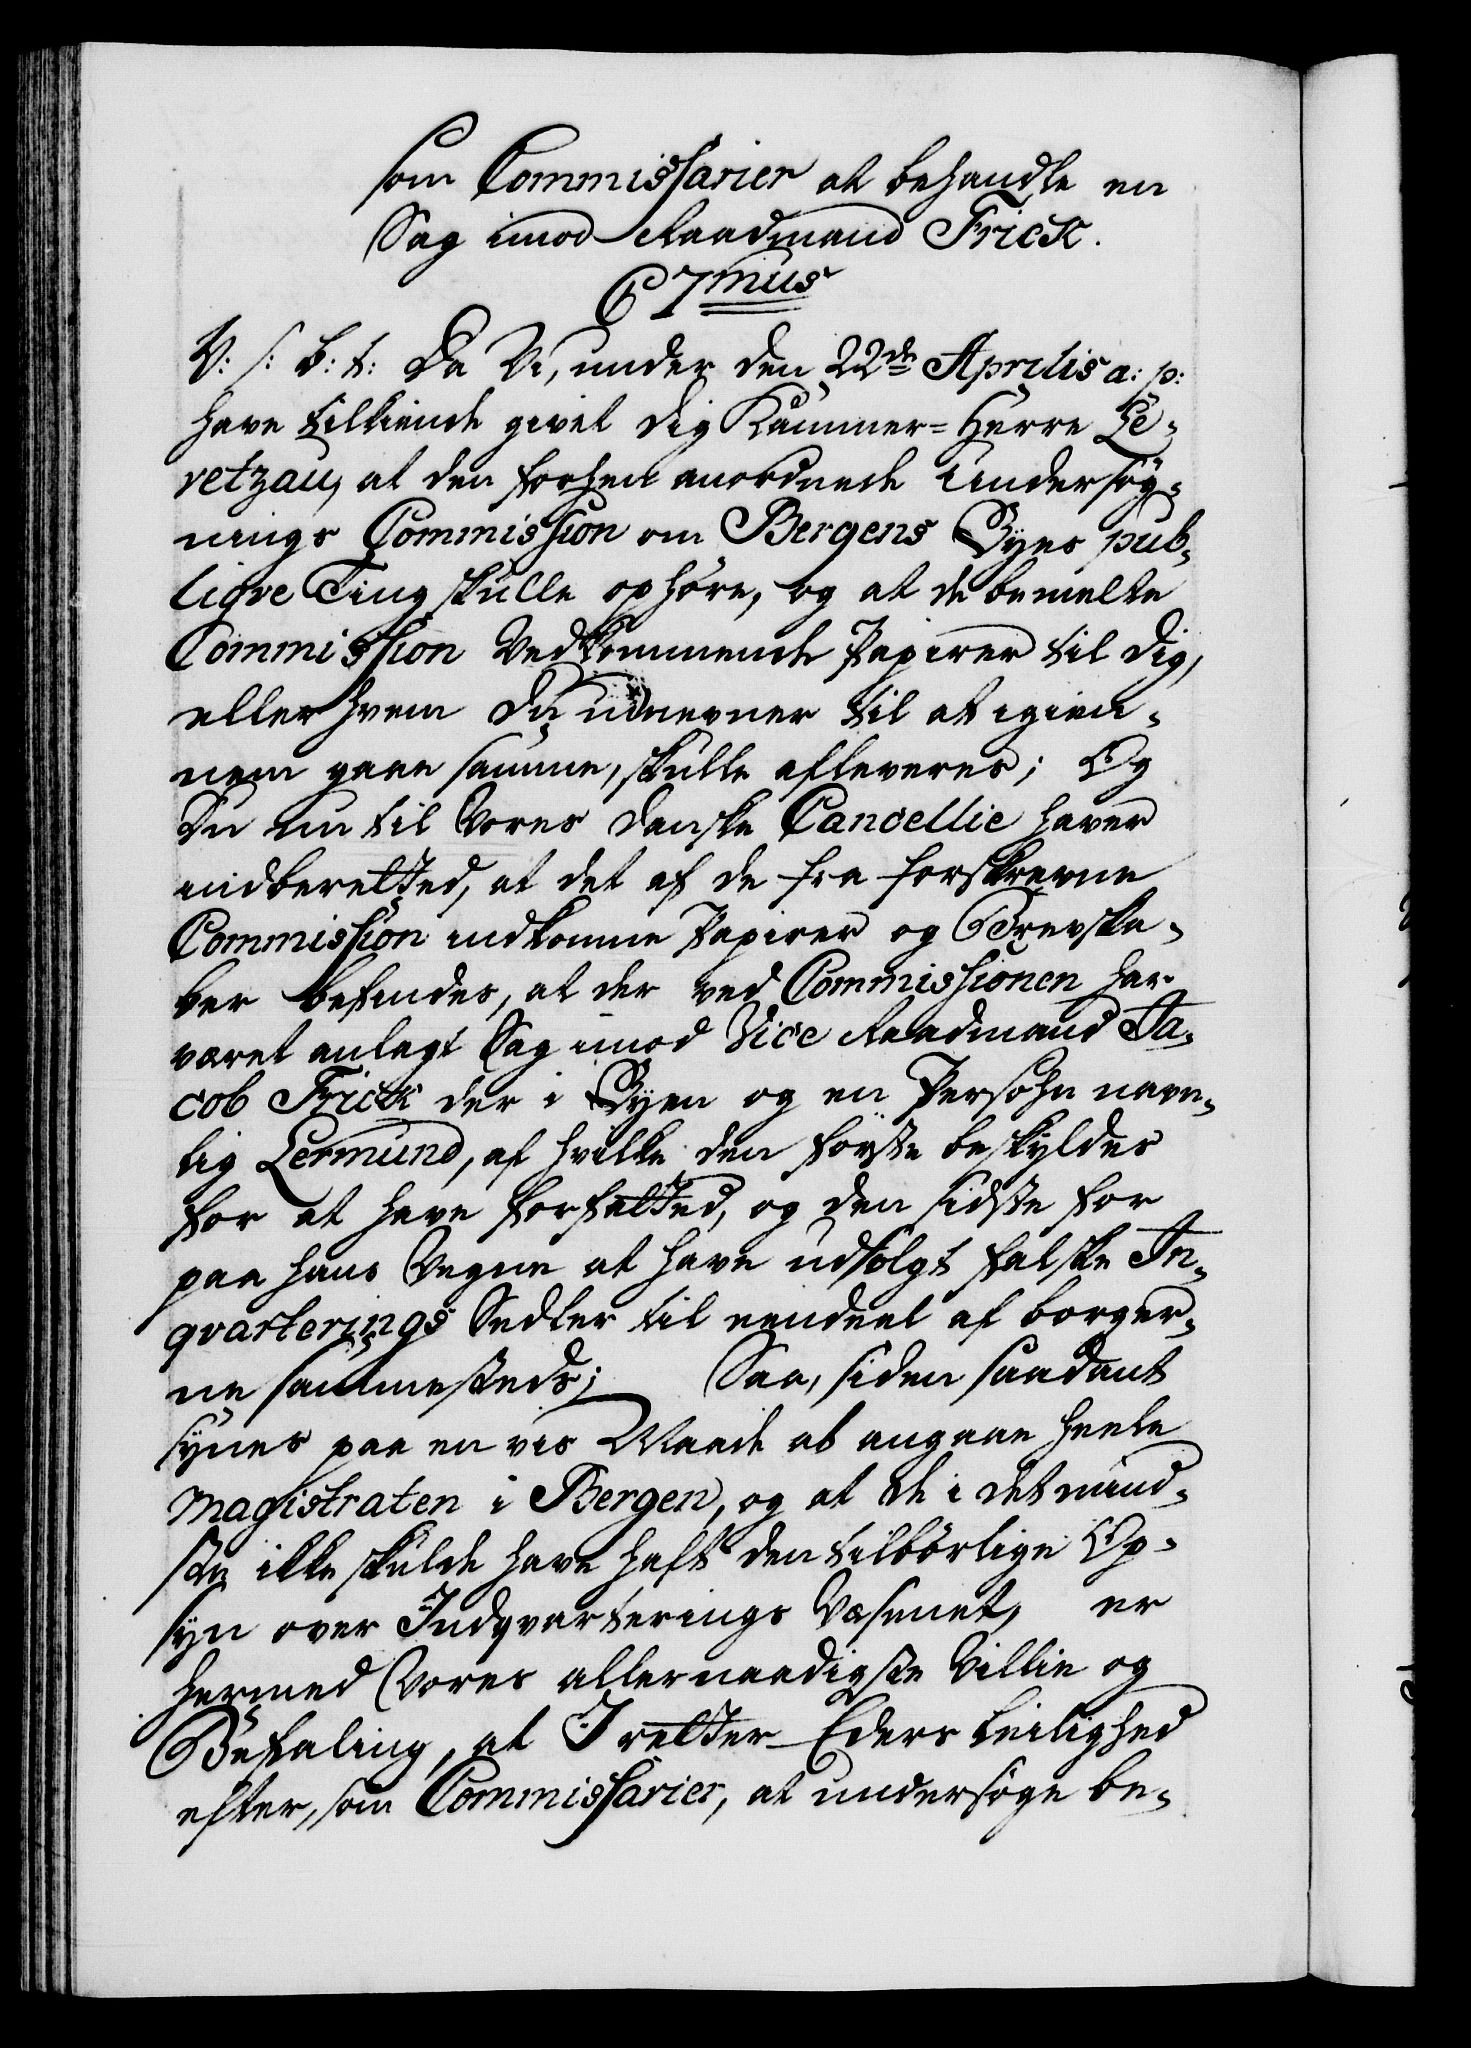 som Commissarier at behandle en
Sag imod Raadmand Frick.
C 7mus
V: s: b: t: Da Vi, under den 22de Aprilis a: p:
have tilkiende givet dig Kammer-Herre Le-
vetzau, at den forhen anordnede Undersøg-
nings Commission om Bergens Byes pub-
liqve Ting skulle ophøre, og at de bemelte
Commission Vedkommende Papirer til dig,
eller hvem du udnevner til at igien-
nem gaae samme, skulle afleveres; Og
Du nu til Vores danske Cancellie haver
indberetted, at det af de fra forskrevne
Commission indkomne Papirer og Brevska-
ber befindes, at der ved Commissionen har
været anlagt Sag imod Vice Raadmand Ja-
cob Frick der i Byen og en Persohn navn-
lig Lermund, af hvilke den første beskyldes
for at have forfatted, og den sidste for
paa hans Vegne at have udsolgt falske In-
qvarterings Sedler til eendeel af borger-
ne sammesteds; Saa, siden saadant
synes paa en vis Maade at angaae heele
Magistraten i Bergen, og at de i det mind-
ste ikke skulde have haft den tilbørlige Op-
syn over Indqvarterings Væsenet, er
hermed Vores allernaadigste Villie og
Befaling, at I retter Eders leilighed
efter, som Commissarier, at undersøge be-